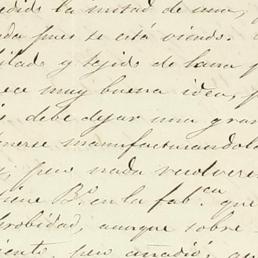 edido la mitad de una,
ada pues se está viendo.
ilado y tejido de lana p
ece muy buena idea, p
s debe dejar una gran
nerse manufacturandola
, pero nada resolvere
iene Bº. en la fabca. que
robidad, aunque sobre
iento, pero añadió, qu